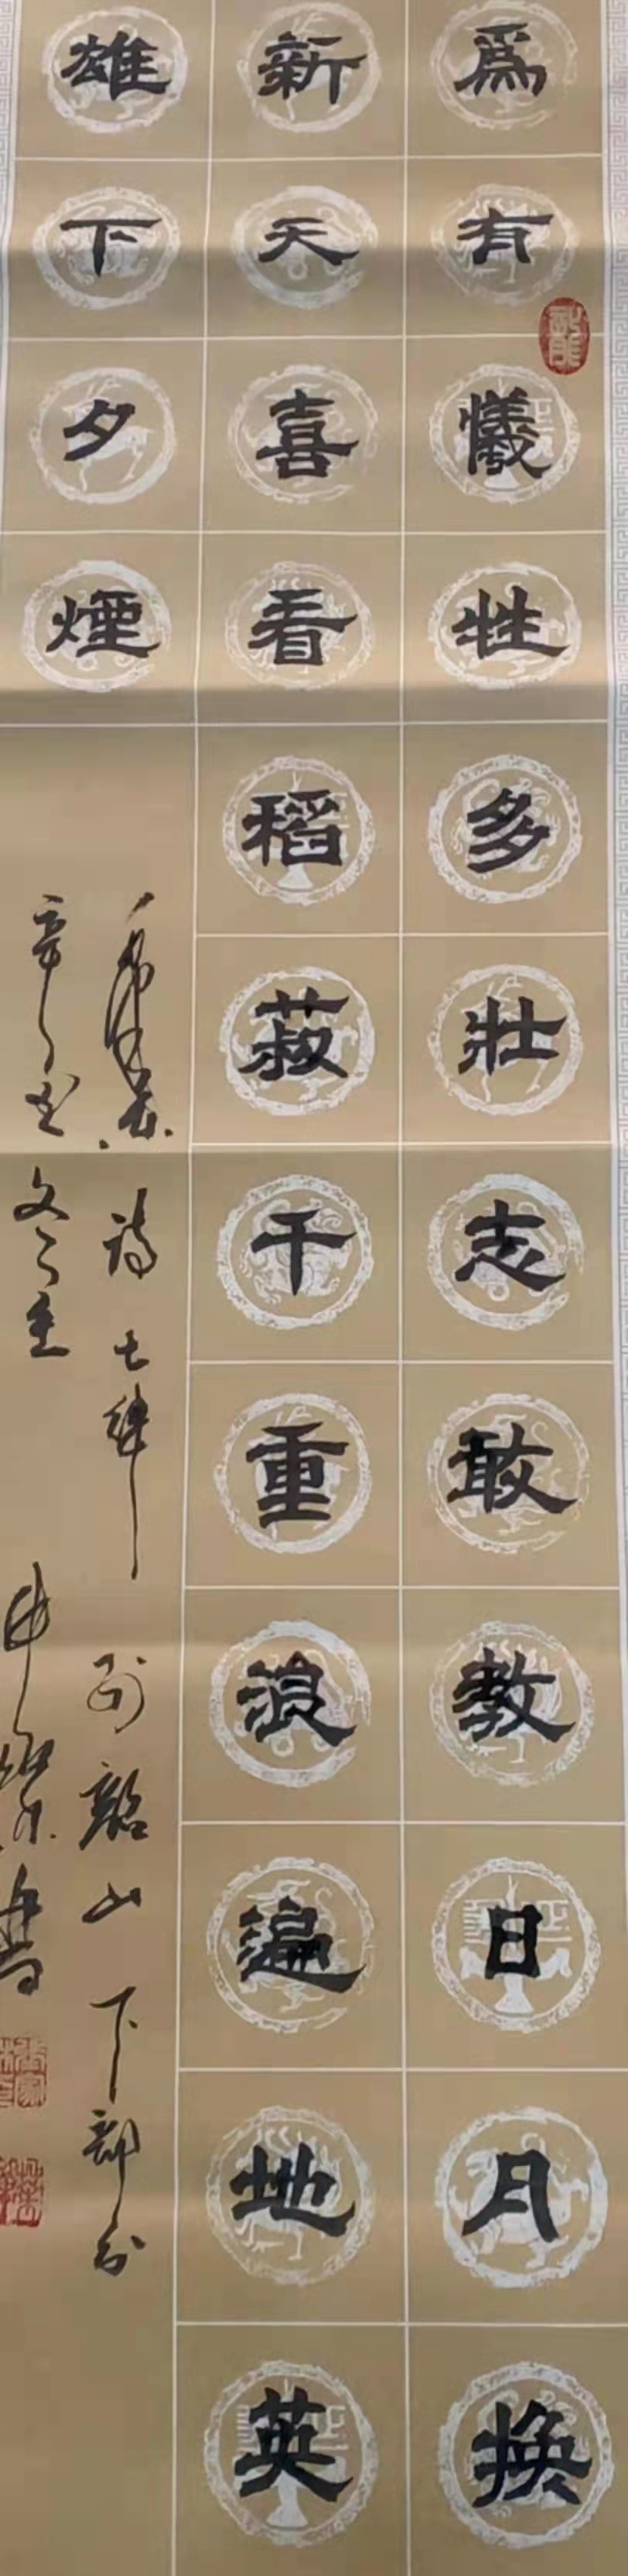 為有犧牲多壯志敢教日月換
新天喜看稻菽千重浪遍地英
雄下夕煙
毛澤東詩七律到韶山下部分
辛丑冬
書